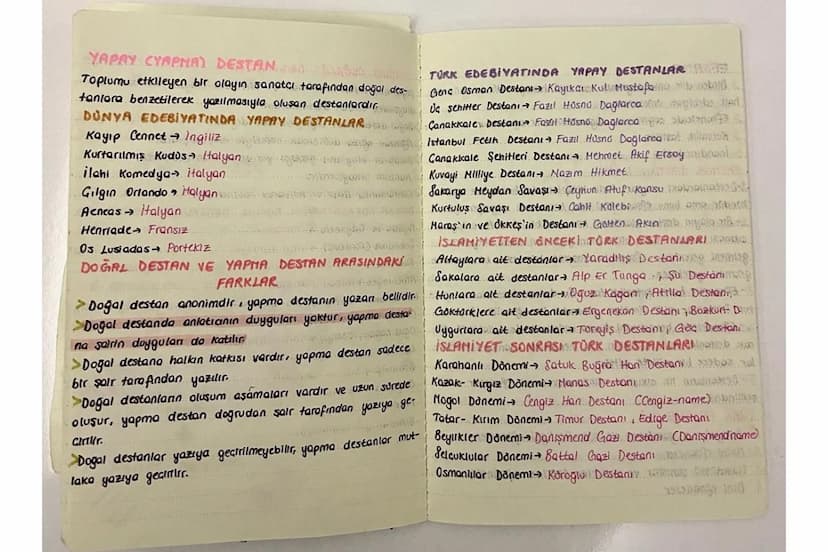 YAPAY (YAPMA) DESTAN
Toplumu etkileyen bir olayın sanatçı tarafından doğal des-
tanlara benzetilerek yazılmasıyla oluşan destanlardır.
DÜNYA EDEBİYATINDA YAPAY DESTANLAR
Kayıp Cennet → İngiliz
Kurtarılmış Kudüs → İtalyan
İlahi Komedya → İtalyan
Çılgın Orlando → İtalyan
Aeneas → İtalyan
Henriade → Fransız
Os Lusiadas → Portekiz
DOĞAL DESTAN VE YAPMA DESTAN ARASINDAKİ
FARKLAR
> Doğal destan anonimdir, yapma destanın yazarı bellidir.
> Doğal destanda anlatıcının duyguları yoktur, yapma desta-
na şairin duyguları da katılır.
> Doğal destana halkın katkısı vardır, yapma destan sadece
bir şair tarafından yazılır.
> Doğal destanların oluşum aşamaları vardır ve uzun sürede
oluşur, yapma destan doğrudan şair tarafından yazıya ge-
çirilir.
> Doğal destanlar yazıya geçirilmeyebilir, yapma destanlar mut-
laka yazıya geçirilir.
TÜRK EDEBİYATINDA YAPAY DESTANLAR
Genç Osman Destanı → Kayıkçı Kul Mustafa
Üç Şehitler Destanı → Fazıl Hüsnü Dağlarca
Çanakkale Destanı → Fazıl Hüsnü Dağlarca
İstanbul Fetih Destanı → Fazıl Hüsnü Dağlarca
Çanakkale Şehitleri Destanı → Mehmet Akif Ersoy
Kuvayi Milliye Destanı → Nazım Hikmet
Sakarya Meydan Savaşı → Ceyhun Atuf Kansu
Kurtuluş Savaşı Destanı → Cahit Külebi
Maraş'ın ve Ökkeş'in Destanı → Gülten Akın
İSLAMİYETTEN ÖNCEKİ TÜRK DESTANLARI
Altaylara ait destanlar → Yaradılış Destanı
Sakalara ait destanlar → Alp Er Tunga, Şu Destanı
Hunlara ait destanlar → Oğuz Kağan, Attila Destanı
Göktürklere ait destanlar → Ergenekon Destanı, Bozkurt D.
Uygurlara ait destanlar → Türeyiş Destanı, Göç Destanı
İSLAMİYET SONRASI TÜRK DESTANLARI
Karahanlı Dönemi → Satuk Buğra Han Destanı
Kazak-Kırgız Dönemi → Manas Destanı
Moğol Dönemi → Cengiz Han Destanı (Cengiz-name)
Tatar-Kırım Dönemi → Timur Destanı, Edige Destanı
Beylikler Dönemi → Danişmend Gazi Destanı (Danişmendname)
Selçuklular Dönemi → Battal Gazi Destanı
Osmanlılar Dönemi → Köroğlu Destanı